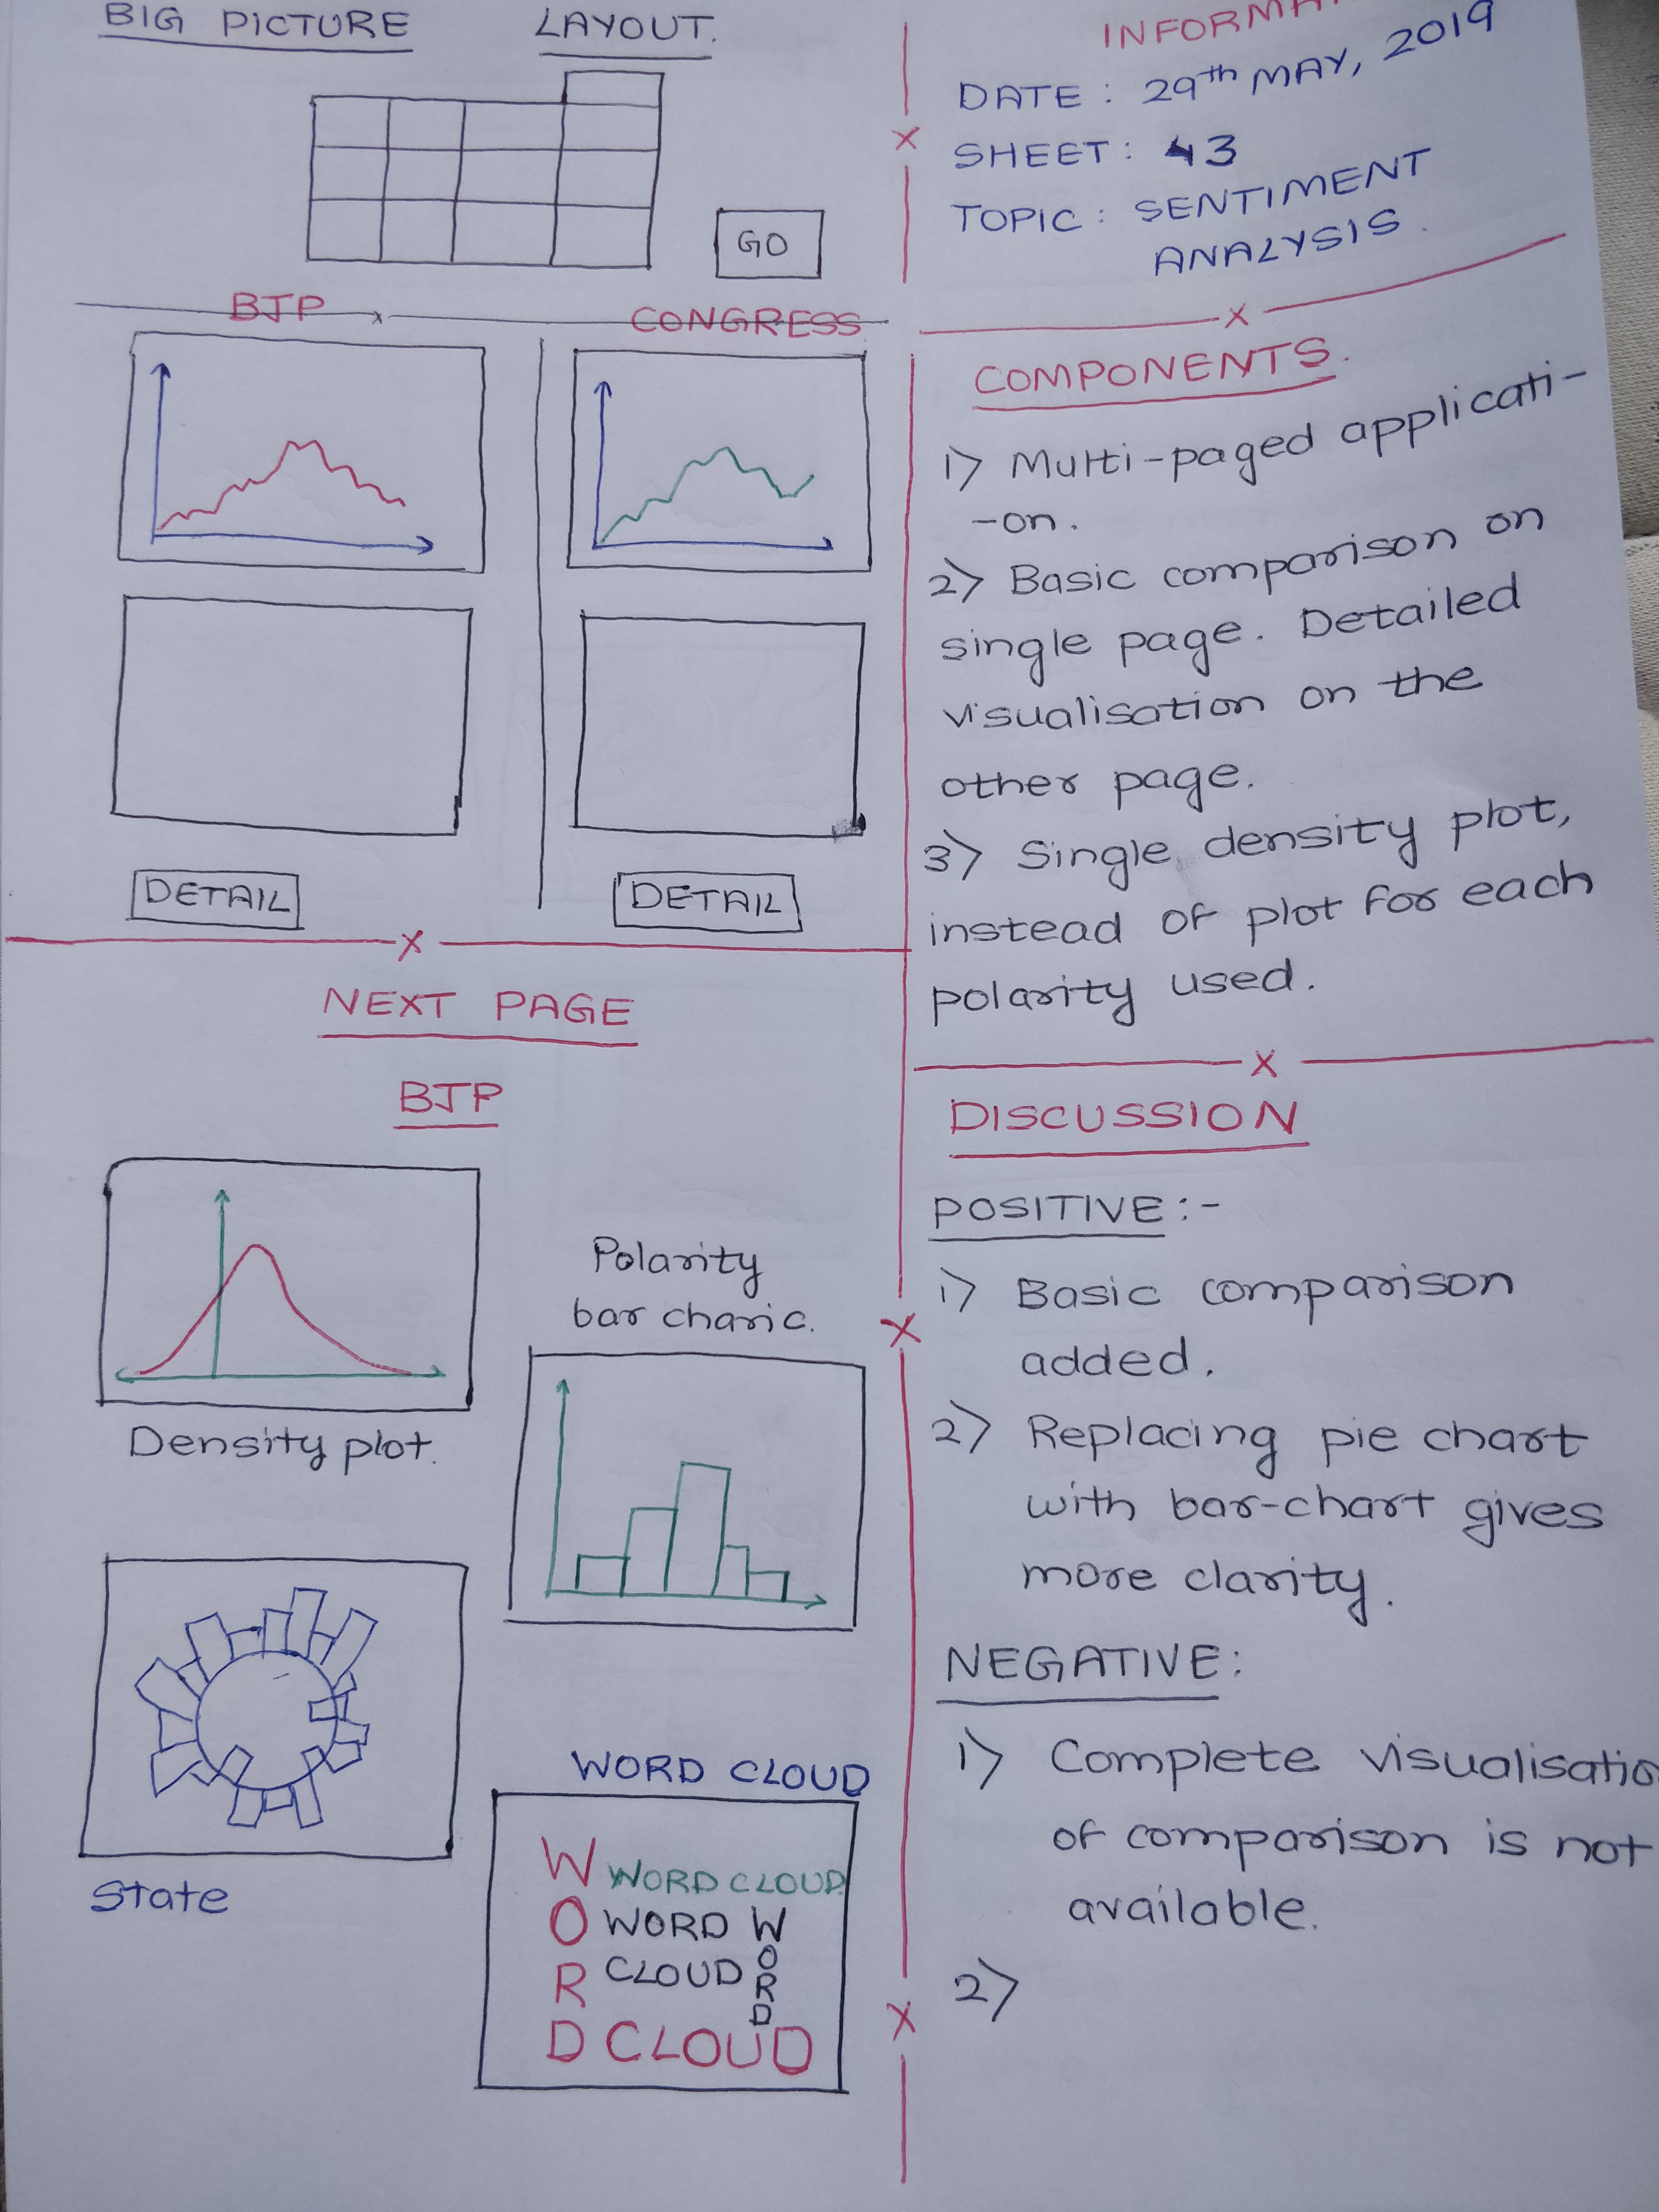 BIG PICTURE LAYOUT.
GO
BJP
CONGRESS
DETAIL
DETAIL
NEXT PAGE
BJP
Density plot.
Polarity
bar charic.
State
WORD CLOUD
WORD
WORD CLOUD
WORD
CLOUD
WORD
CLOUD
DATE : 29th MAY, 2019
SHEET : 43
TOPIC : SENTIMENT
ANALYSIS.
COMPONENTS.
1) Multi-paged applicati-
-on.
2) Basic comparison on
single page. Detailed
visualisation on the
other page.
3) Single density plot,
instead of plot for each
polarity used.
DISCUSSION
POSITIVE :-
1) Basic comparison
added.
2) Replacing pie chart
with bar-chart gives
more clarity.
NEGATIVE :
1) Complete visualisatio
of comparison is not
available.
2)